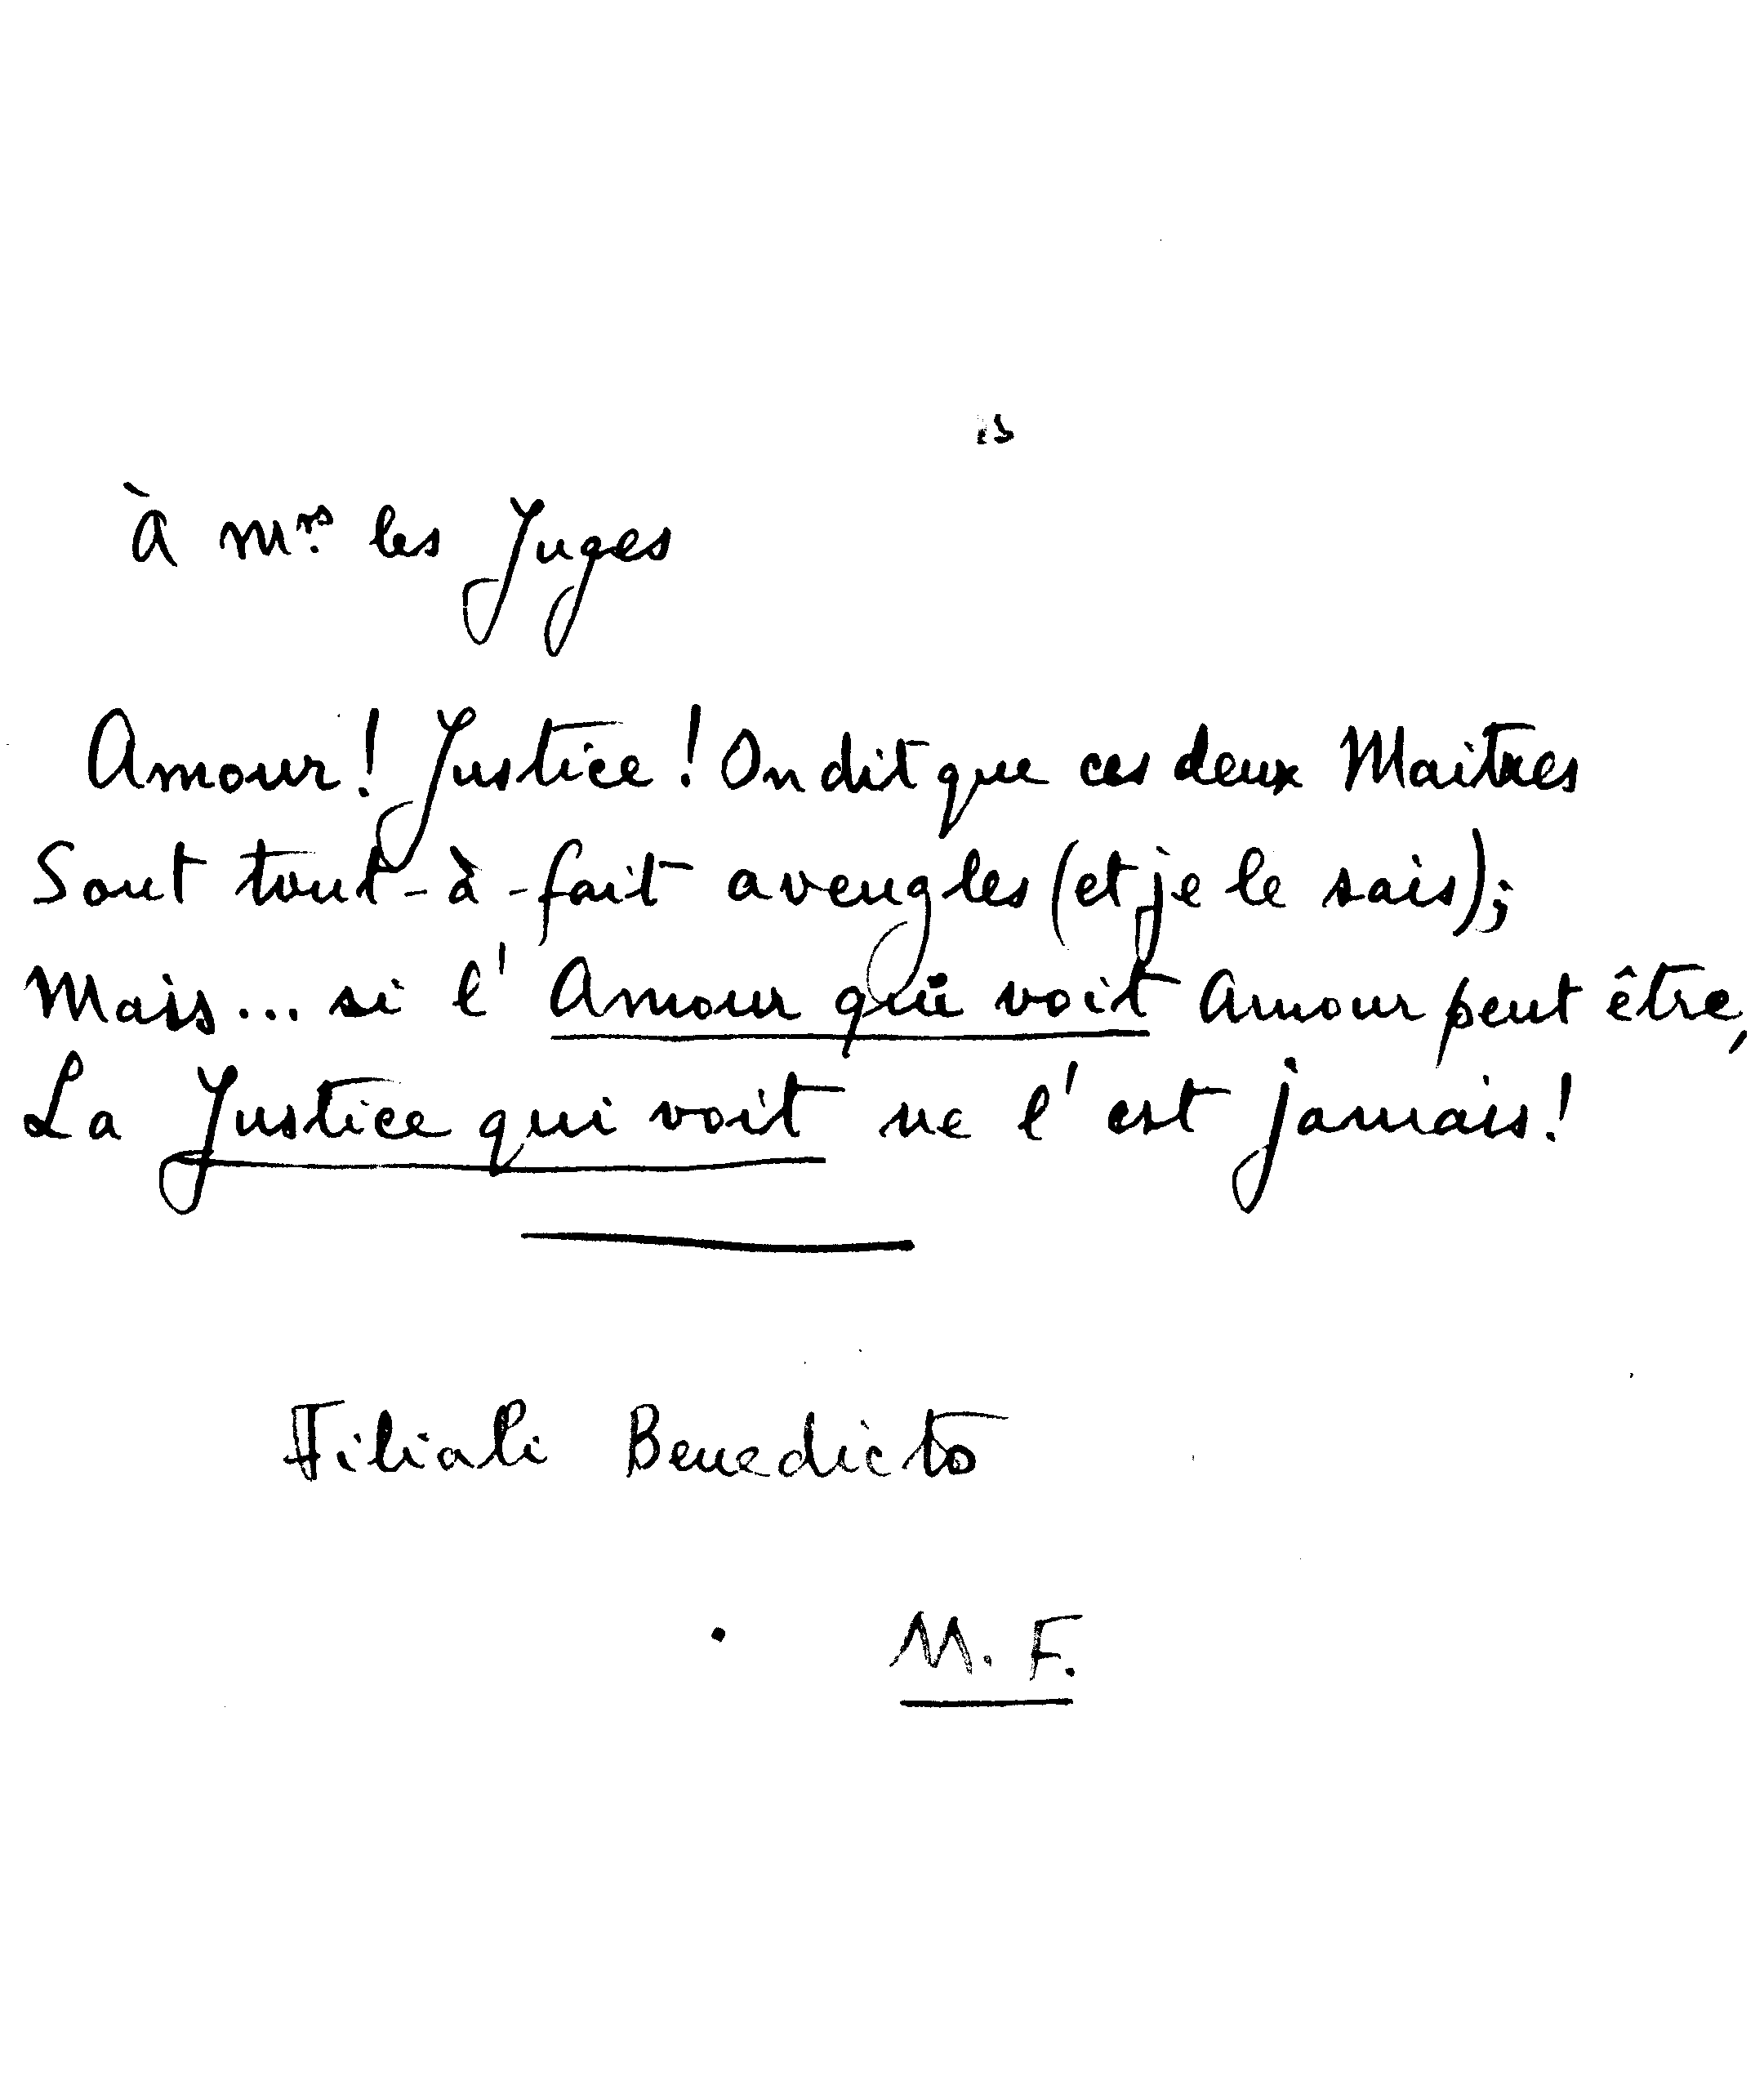 À Mrs. les Juges
Amour! Justice! On dit que ces deux Maitres
Sont tout-à-fait aveugles (et je le sais);
Mais... si l'Amour qui voit Amour peut être,
La Justice qui voit ne l'est jamais!
Filiali Benedicto
M. F.